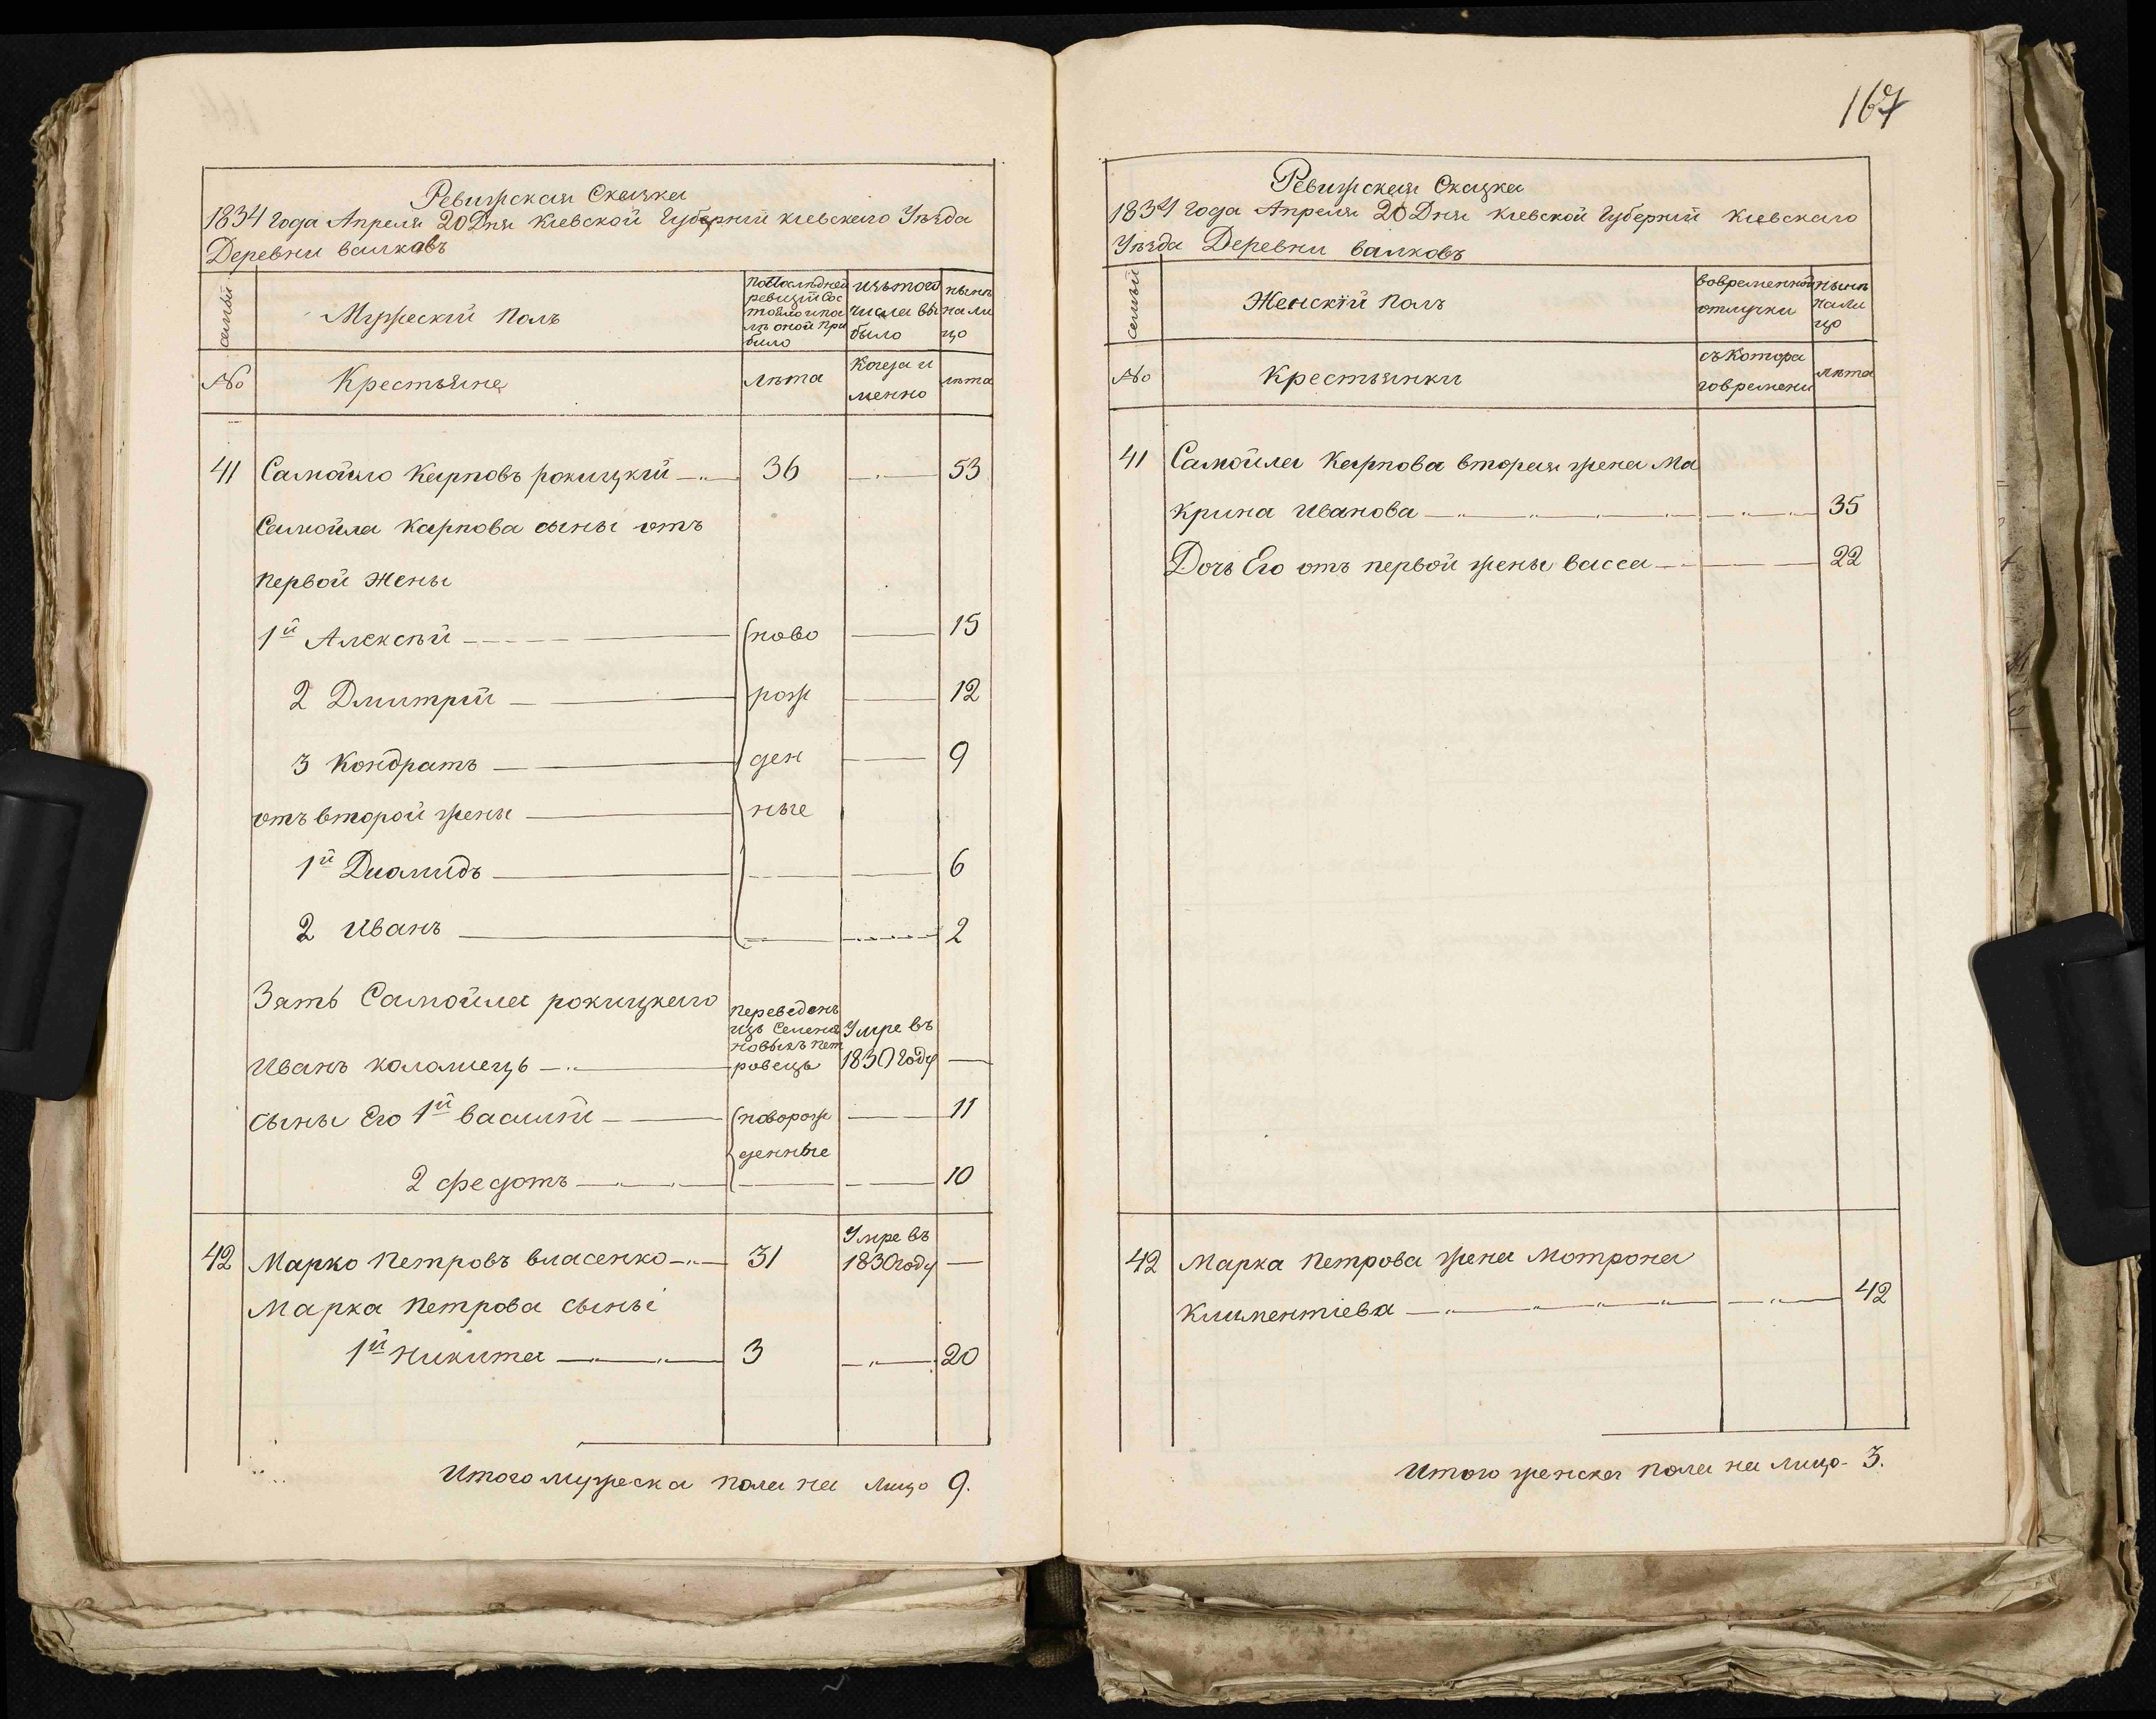 167
Ревизская Сказка
1834 года Апреля 20 Дня Киевской Губернїи киевского Уѣзда
Деревни валковъ
семьи
Мужескїй полъ
По Послѣдней ревизїи Сос тояло и по слѣ оной при было
изъ того числа вы было
нынѣ на ли цо
№
Крестьяне
лѣта
Когда и менно
лѣта
41 Самойло Карповъ рокицкїй 36 53
Самойла Карпова сыны отъ
первой Жены
1й Алексѣй ново 15
2 Дмитрїй рож 12
3 Кондратъ ден 9
отъ второй жены ные
1й Диамидъ 6
2 Иванъ 2
Зять Самойла рокицкаго
Иванъ коломецъ переведенъ изъ Семена новыхъ пет ровецъ Умре въ 1830 году
сыны Его 1й василїй новорож 11
денные
2 федотъ 10
42 Марко Петровъ власенко 31 Умре въ 1830 году
Марка Петрова сыны
1й Никита 3 20
Итого мужеска пола на лицо 9.
Ревизская Сказка
1834 года Апреля 20 Дня киевской Губернїи Киевскаго
Уѣзда Деревни валковъ
семьи
Женскїй Полъ
во временной отлучки
нынѣ нали цо
№
Крестьянки
съ Котора го времени
лѣта
41 Самойла Карпова вторая жена Ма
крина Иванова 35
Дочь Его отъ первой жены васса 22
42 Марка Петрова жена Мотрона
Климентїева 42
Итого женска пола на лицо 3.